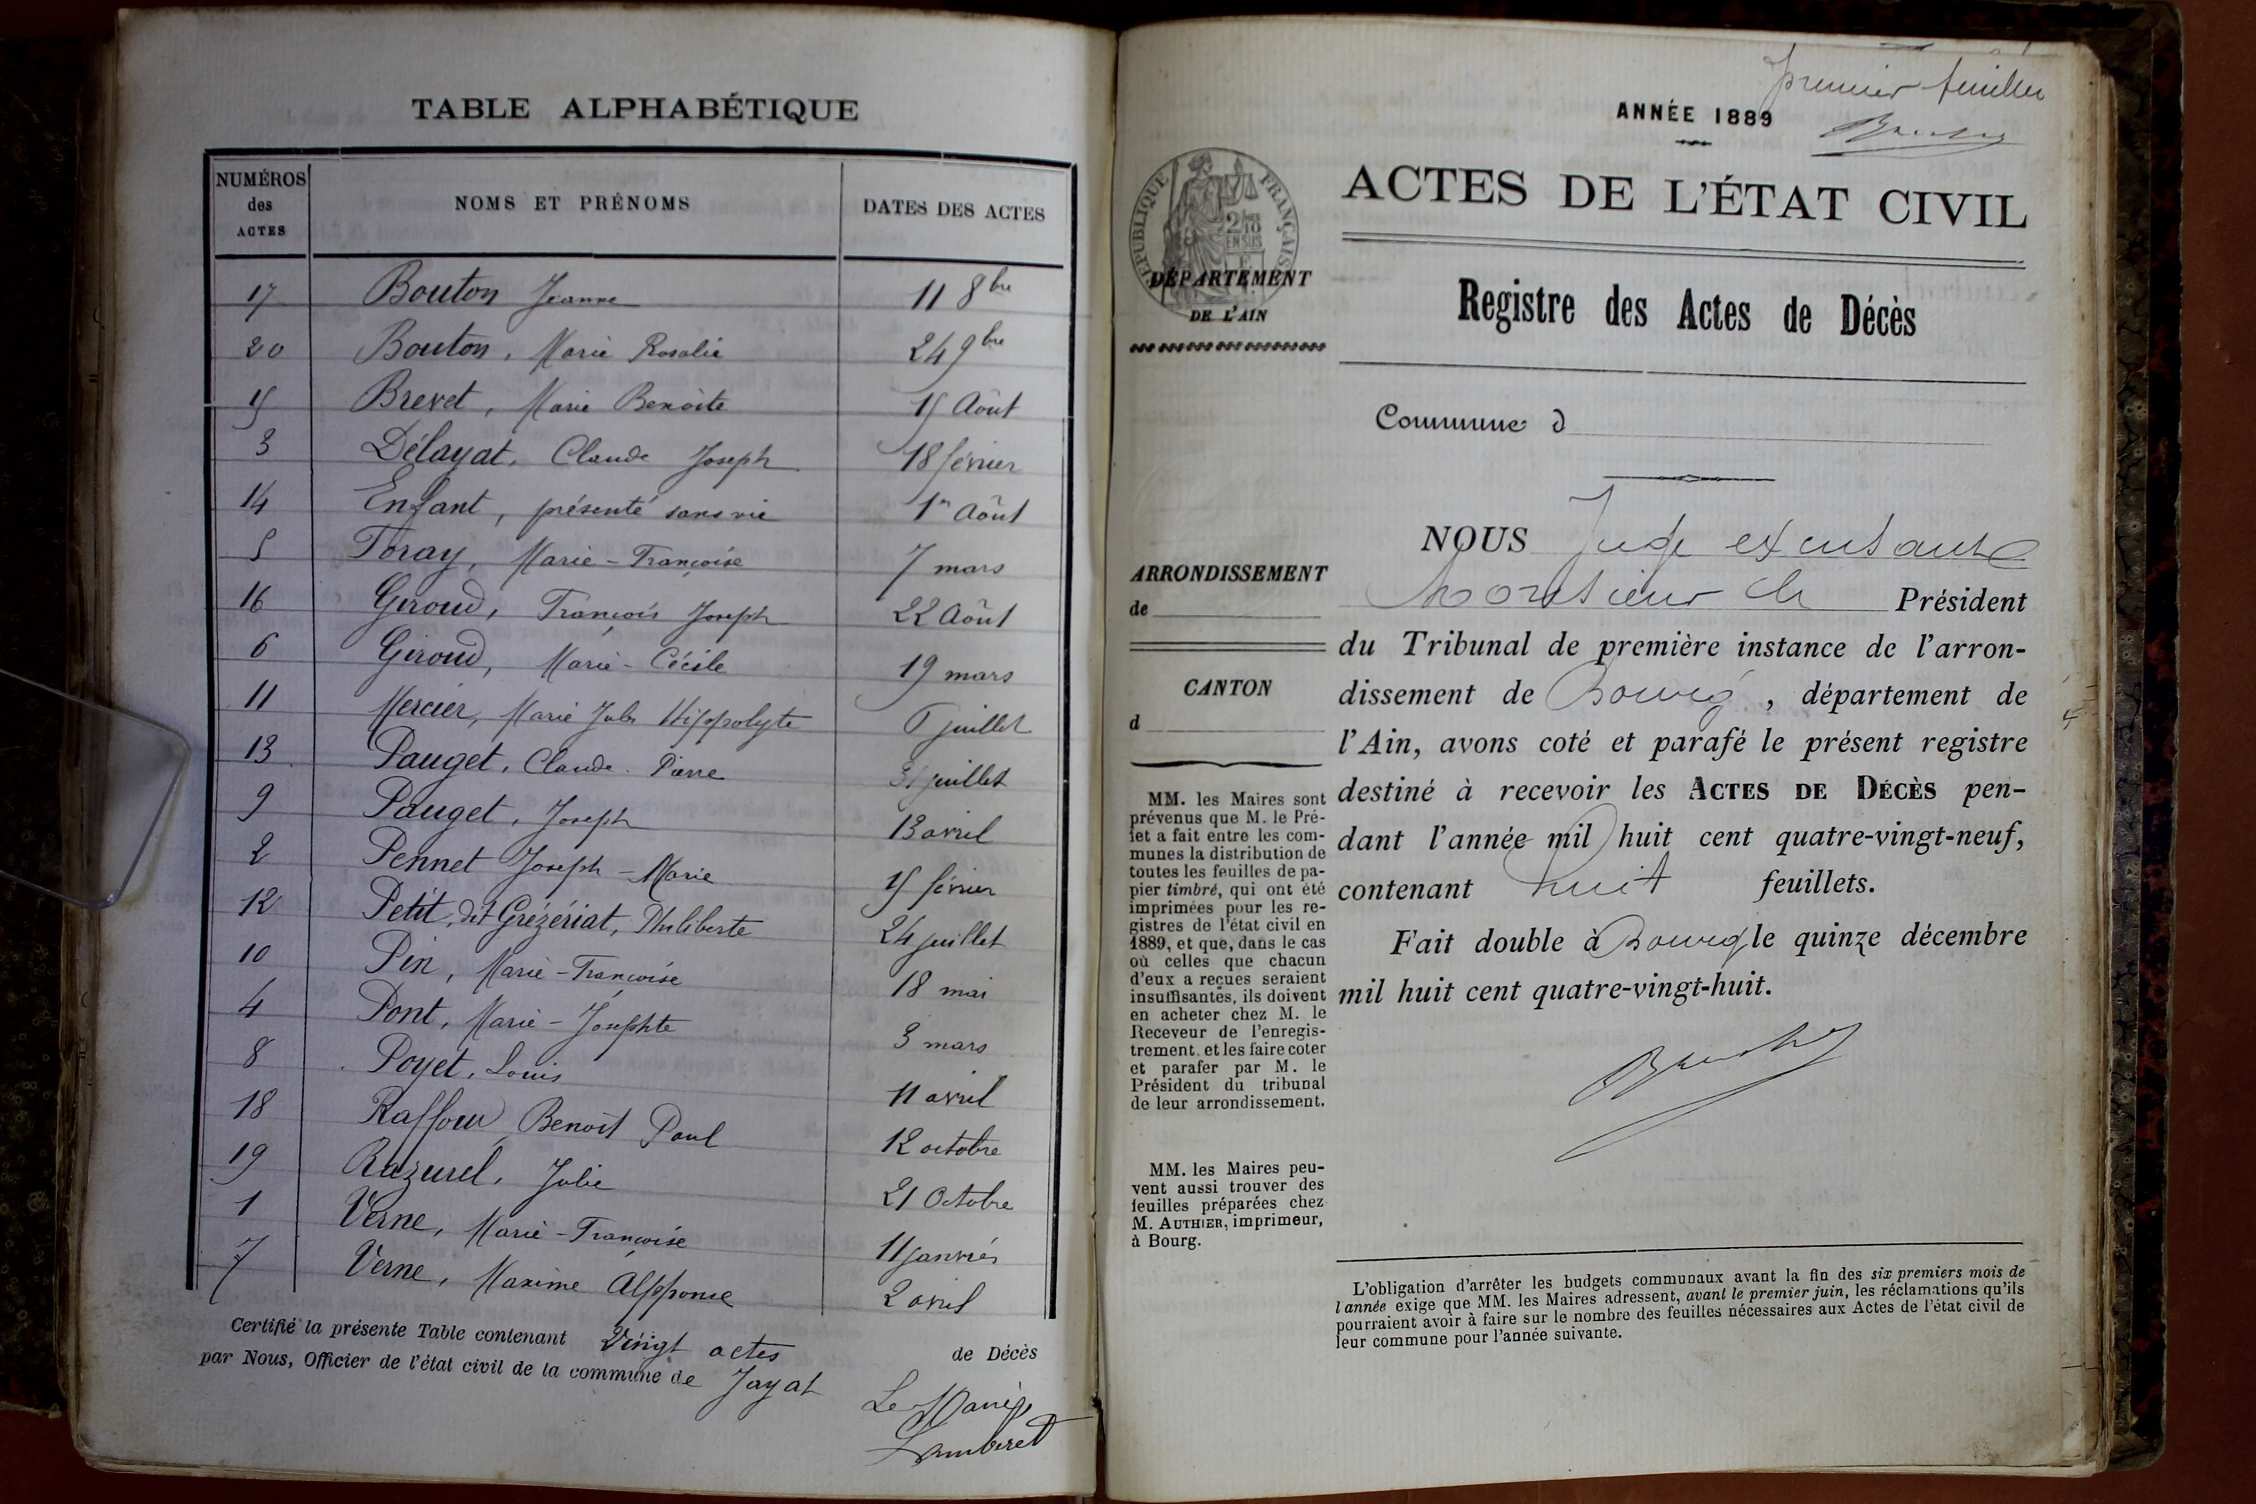 TABLE ALPHABÉTIQUE
NUMÉROS des ACTES NOMS ET PRÉNOMS DATES DES ACTES
17 Bouton Jeanne 11 8bre
20 Bouton, Marie Rosalie 24 9bre
15 Brevet, Marie Benoîte 15 Août
3 Délayat, Claude Joseph 18 février
14 Enfant, présenté sans vie 1er Août
5 Foray, Marie-Françoise 7 mars
16 Giroud, François Joseph 22 Août
6 Giroud, Marie-Cécile 19 mars
11 Mercier, Marie Jules Hippolyte juillet
13 Pauget, Claude Pierre 31 juillet
9 Pauget, Joseph 13 avril
2 Pennet Joseph-Marie 15 février
12 Petit, dit Grézériat, Philiberte 24 juillet
10 Pin, Marie-Françoise 18 mai
4 Pont, Marie-Josephte 3 mars
8 Poyet, Louis 11 avril
18 Raffour, Benoît Paul 12 octobre
19 Razurel, Julie 21 Octobre
1 Verne, Marie-Françoise 11 janvier
7 Verne, Maxime Alphonse 2 avril
Certifié la présente Table contenant Vingt actes de Décès
par Nous, Officier de l'état civil de la commune de Jayat
Le Maire
Lambert
premier feuillet
ANNÉE 1889
ACTES DE L'ÉTAT CIVIL
RÉPUBLIQUE FRANÇAISE
DÉPARTEMENT
DE L'AIN
Registre des Actes de Décès
Commune d
ARRONDISSEMENT
de
CANTON
d
MM. les Maires sont
prévenus que M. le Pré-
fet a fait entre les com-
munes la distribution de
toutes les feuilles de pa-
pier timbré, qui ont été
imprimées pour les re-
gistres de l'état civil en
1889, et que, dans le cas
où celles que chacun
d'eux a reçues seraient
insuffisantes, ils doivent
en acheter chez M. le
Receveur de l'enregis-
trement. et les faire coter
et parafer par M. le
Président du tribunal
de leur arrondissement.
MM. les Maires peu-
vent aussi trouver des
feuilles préparées chez
M. AUTHIER, imprimeur,
à Bourg.
NOUS Juge
Monsieur le Président
du Tribunal de première instance de l'arron-
dissement de Bourg, département de
l'Ain, avons coté et parafé le présent registre
destiné à recevoir les ACTES DE DÉCÈS pen-
dant l'année mil huit cent quatre-vingt-neuf,
contenant huit feuillets.
Fait double à Bourg le quinze décembre
mil huit cent quatre-vingt-huit.
L'obligation d'arrêter les budgets communaux avant la fin des six premiers mois de
l'année exige que MM. les Maires adressent, avant le premier juin, les réclamations qu'ils
pourraient avoir à faire sur le nombre des feuilles nécessaires aux Actes de l'état civil de
leur commune pour l'année suivante.